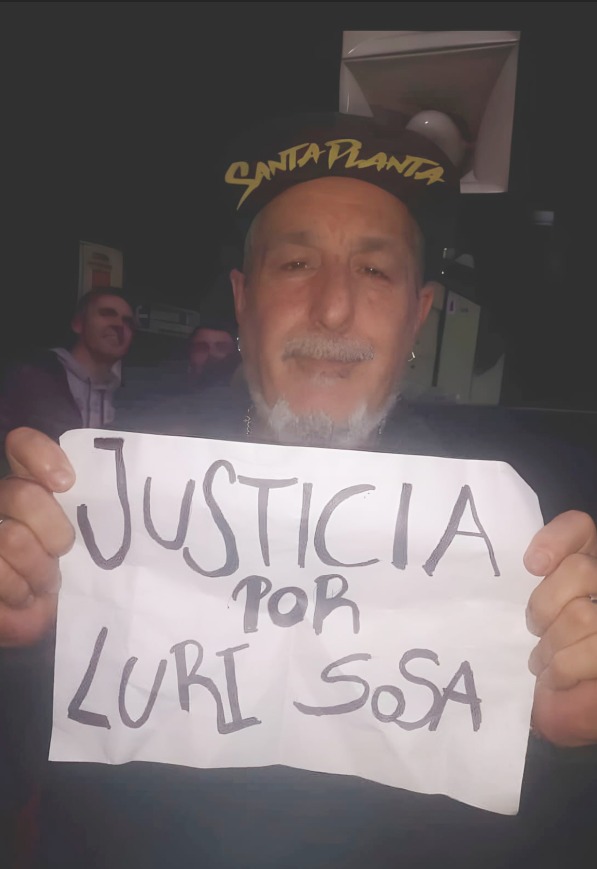 SANTA PLANTA
JUSTICIA
POR
LURI SOSA